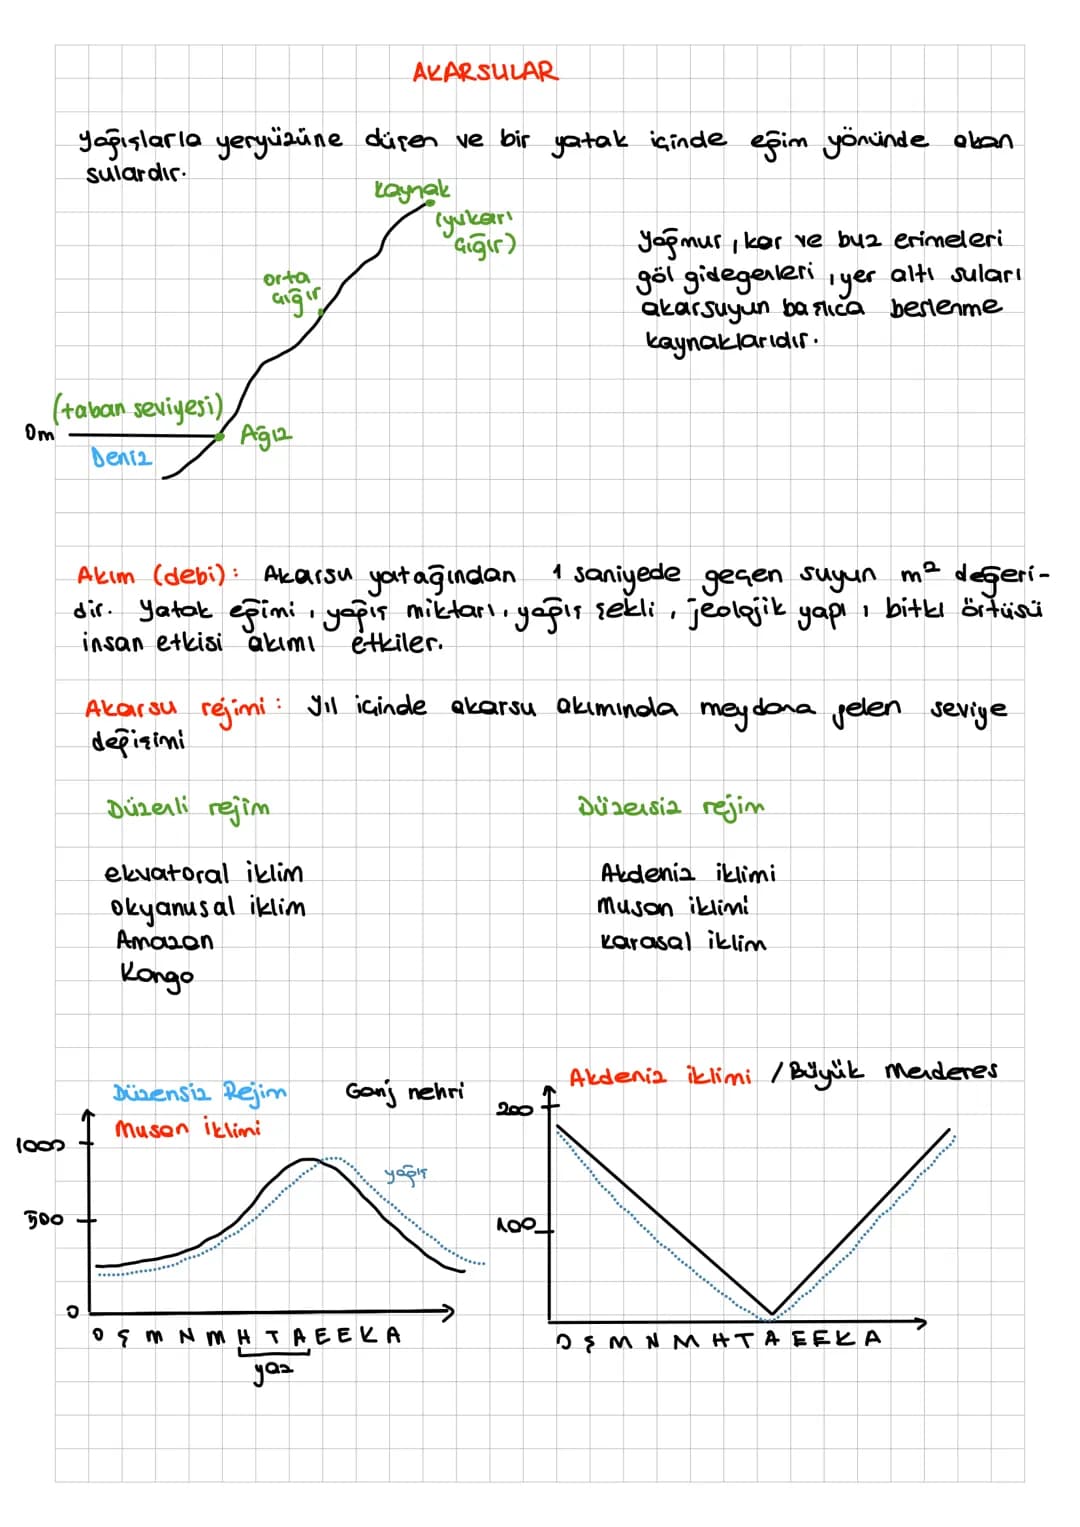 AKARSULAR
Yağışlarla yeryüzüne düşen ve bir yatak içinde eğim yönünde akan
sulardır.
kaynak
(yukarı
çığır)
orta
çığır
Yağmur, kar ve buz erimeleri
göl gidegenleri, yer altı suları
akarsuyun başlıca beslenme
kaynaklarıdır.
(taban seviyesi)
0m
Ağız
Deniz
Akım (debi): Akarsu yatağından 1 saniyede geçen suyun m² değeri-
dir. Yatak eğimi, yağış miktarı, yağış şekli, jeolojik yapı, bitki örtüsü
insan etkisi akımı etkiler.
Akarsu rejimi: Yıl içinde akarsu akımında meydana gelen seviye
değişimi
Düzenli rejim
ekvatoral iklim
okyanusal iklim
Amazon
Kongo
Düzensiz rejim
Akdeniz iklimi
Muson iklimi
Karasal iklim
Düzensiz Rejim
Ganj nehri
Muson iklimi
1000
500
0
yağış
O Ş M N M H T A E E K A
yaz
Akdeniz iklimi / Büyük Menderes
200
100
O Ş M N M H T A E E K A